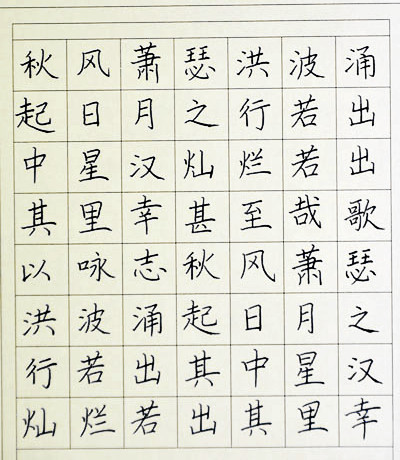 秋风萧瑟洪波涌
起日月之行若出
中星汉灿烂若出
其里幸甚至哉歌
以咏志秋风萧瑟
洪波涌起日月之
行若出其中星汉
灿烂若出其里幸